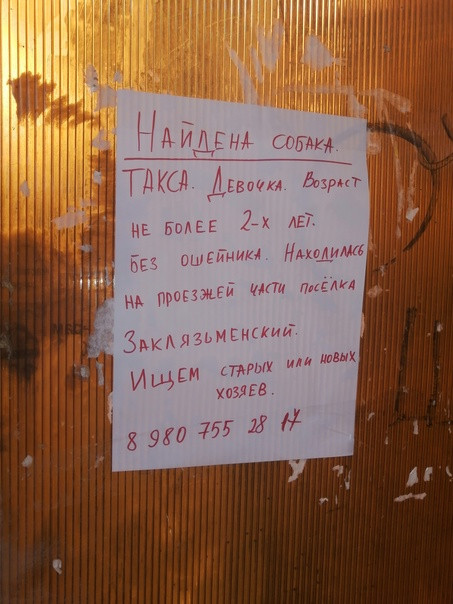 НАЙДЕНА СОБАКА.
ТАКСА. ДЕВОЧКА. ВОЗРАСТ
НЕ БОЛЕЕ 2-Х ЛЕТ.
БЕЗ ОШЕЙНИКА. НАХОДИЛАСЬ
НА ПРОЕЗЖЕЙ ЧАСТИ ПОСЁЛКА
ЗАКЛЯЗЬМЕНСКИЙ.
ИЩЕМ СТАРЫХ ИЛИ НОВЫХ
ХОЗЯЕВ.
8 980 755 28 17